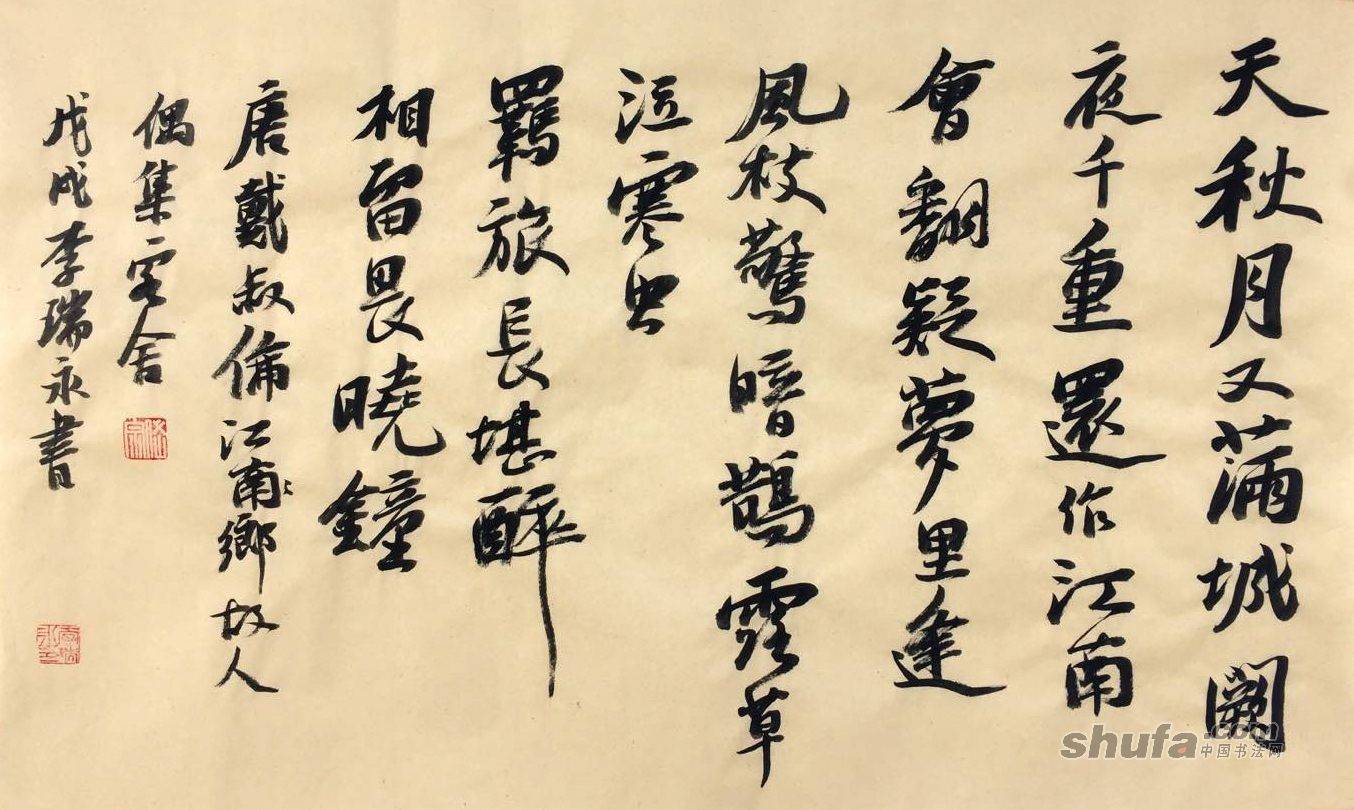 天秋月又滿城闕
夜千重還作江南
會翻疑夢里逢
風枝驚暗鵲露草
泣寒虫
羈旅長堪醉
相留畏曉鐘
唐戴叔倫江南鄉故人
偶集客舍
戊戌李瑞永書
shufa.com
中国书法网